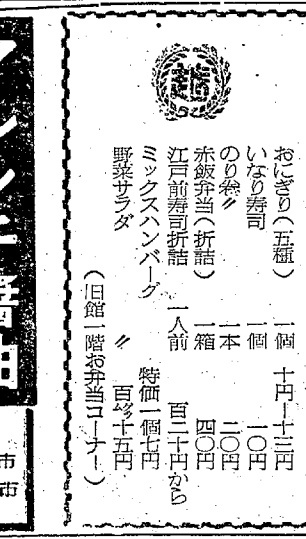 おにぎり(五種) 一個 十円―十三円
いなり寿司 一個 一〇円
のり巻〃 一本 二〇円
赤飯弁当(折詰) 一箱 四〇円
江戸前寿司折詰 一人前 百二十円から
ミックスハンバーグ 特価一個七円
野菜サラダ 〃 百㌘十五円
(旧館一階お弁当コーナー)
醤油
市
市